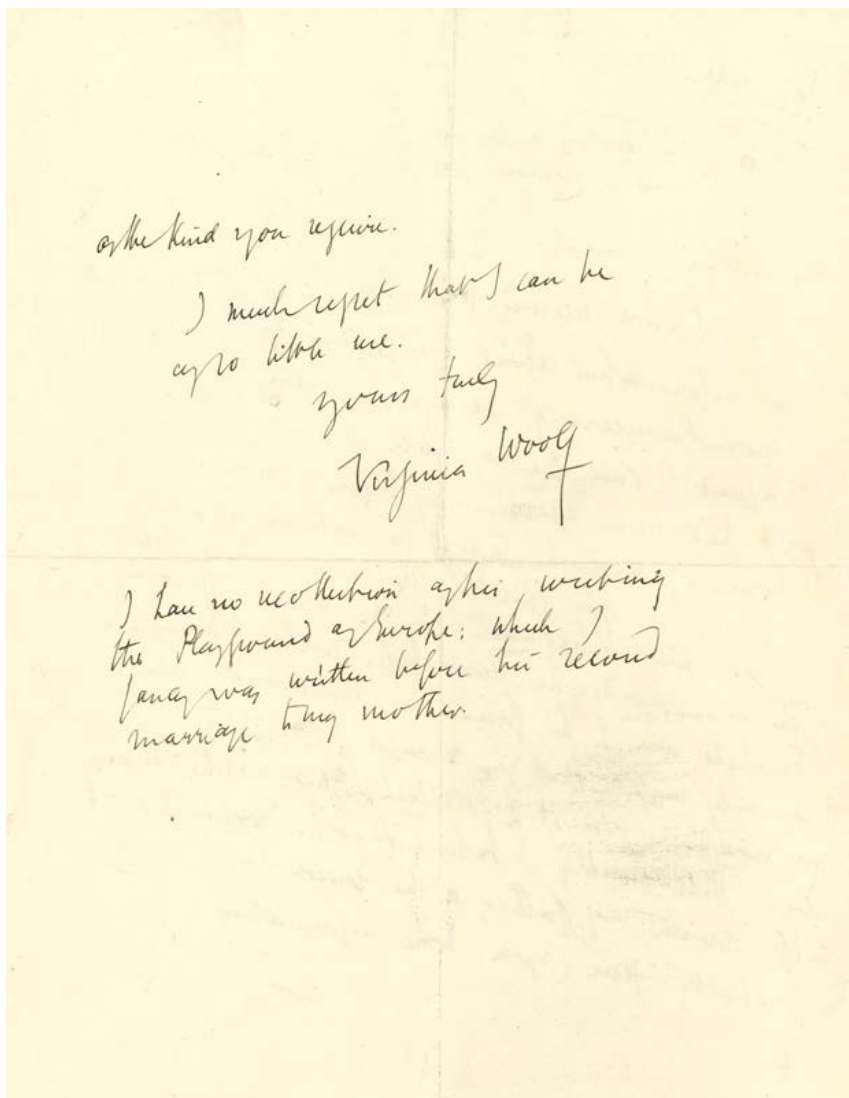 of the kind you require.
I much regret that I can be
of so little use.
yours truly
Virginia Woolf
I have no recollection of his writing
the Playground of Europe; which I
fancy was written before his second
marriage to my mother.